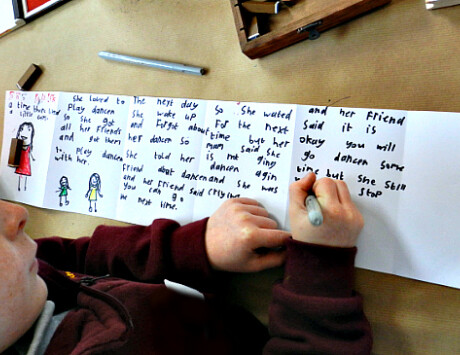 a time there lived
a little
She loved to
Play dancen
so she got
all her friends
and got them
to play dancen
with her.
The next day
she wake up
and forgot about
her dancen so
she told her
friend about dancen
and her friend said
you can go
he next time.
So she wated
for the next
time but her
mum said she
is not ging
dancen agin
and she was
crying
and her Friend
said it is
okay you will
go dancen some
time but she still
stop